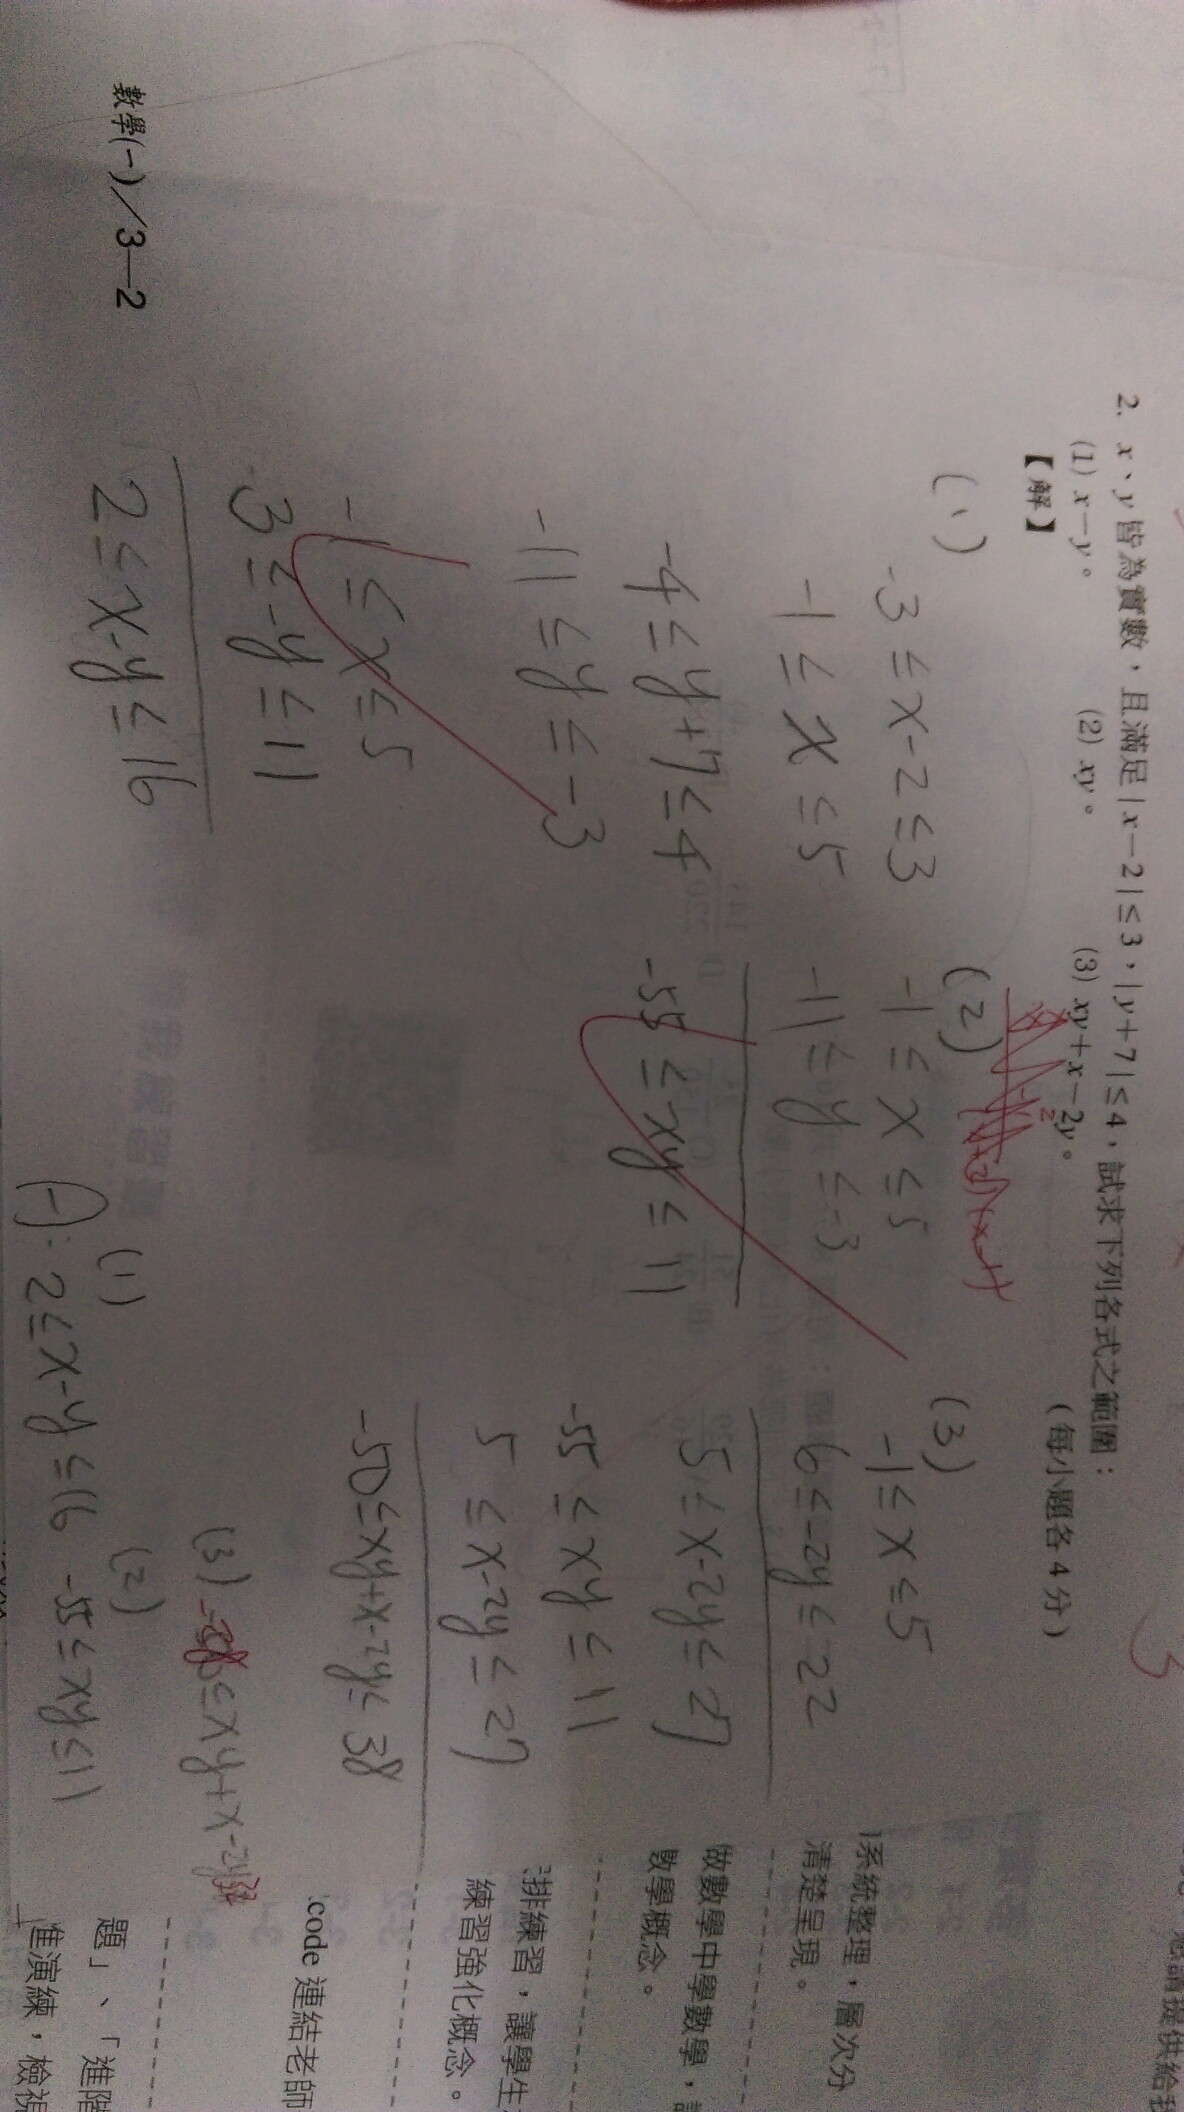 2. x、y 皆為實數,且滿足 |x-2|≤3,|y+7|≤4,試求下列各式之範圍:
(1) x-y。 (2) xy。 (3) xy+x-2y。 (每小題各4分)
【解】
(1)
-3≤x-2≤3
-1≤x≤5
-4≤y+7≤4
-11≤y≤-3
-1≤x≤5
3≤-y≤11
2≤x-y≤16
(2)
-1≤x≤5
-11≤y≤-3
-55≤xy≤11
(3)
-1≤x≤5
6≤-2y≤22
5≤x-2y≤27
-55≤xy≤11
5≤x-2y≤27
-50≤xy+x-2y≤38
(3) ≤xy+x-2y
(1) (2)
(-): 2≤x-y≤16 -55≤xy≤11
數學(一)/3—2
系統整理,層次分
清楚呈現。
做數學中學數學,
數學概念。
排練習,讓學生
練習強化概念。
code 連結老師
題」、「進階
進演練,檢視
3